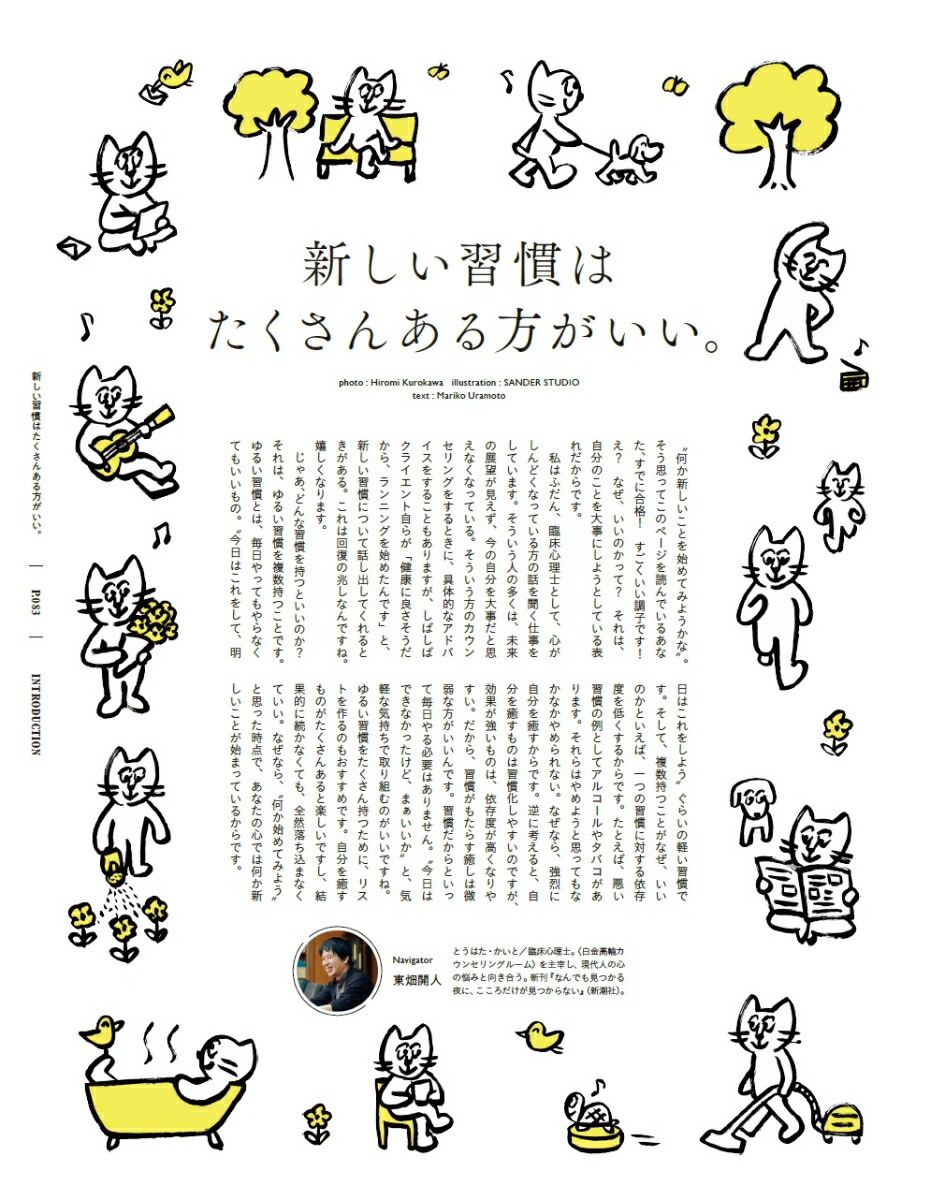 新しい習慣は
たくさんある方がいい。
photo : Hiromi Kurokawa illustration : SANDER STUDIO
text : Mariko Uramoto
〝何か新しいことを始めてみようかな〟。
そう思ってこのページを読んでいるあな
た、すでに合格! すごくいい調子です!
え? なぜ、いいのかって? それは、
自分のことを大事にしようとしている表
れだからです。
私はふだん、臨床心理士として、心が
しんどくなっている方の話を聞く仕事を
しています。そういう人の多くは、未来
の展望が見えず、今の自分を大事だと思
えなくなっている。そういう方のカウン
セリングをするときに、具体的なアドバ
イスをすることもありますが、しばしば
クライエント自らが「健康に良さそうだ
から、ランニングを始めたんです」と、
新しい習慣について話し出してくれると
きがある。これは回復の兆しなんですね。
嬉しくなります。
じゃあ、どんな習慣を持つといいのか?
それは、ゆるい習慣を複数持つことです。
ゆるい習慣とは、毎日やってもやらなく
てもいいもの。〝今日はこれをして、明
日はこれをしよう〟ぐらいの軽い習慣で
す。そして、複数持つことがなぜ、いい
のかといえば、一つの習慣に対する依存
度を低くするからです。たとえば、悪い
習慣の例としてアルコールやタバコがあ
ります。それらはやめようと思ってもな
かなかやめられない。なぜなら、強烈に
自分を癒すからです。逆に考えると、自
分を癒すものは習慣化しやすいのですが、
効果が強いものは、依存度が高くなりや
すい。だから、習慣がもたらす癒しは微
弱な方がいいんです。習慣だからといっ
て毎日やる必要はありません。〝今日は
できなかったけど、まぁいいか〟と、気
軽な気持ちで取り組むのがいいですね。
ゆるい習慣をたくさん持つために、リス
トを作るのもおすすめです。自分を癒す
ものがたくさんあると楽しいですし、結
果的に続かなくても、全然落ち込まなく
ていい。なぜなら、〝何か始めてみよう〟
と思った時点で、あなたの心では何か新
しいことが始まっているからです。
Navigator
東畑開人
とうはた・かいと/臨床心理士。〈白金高輪カ
ウンセリングルーム〉を主宰し、現代人の心
の悩みと向き合う。新刊『なんでも見つかる
夜に、こころだけが見つからない』(新潮社)。
新しい習慣はたくさんある方がいい。
P083
INTRODUCTION